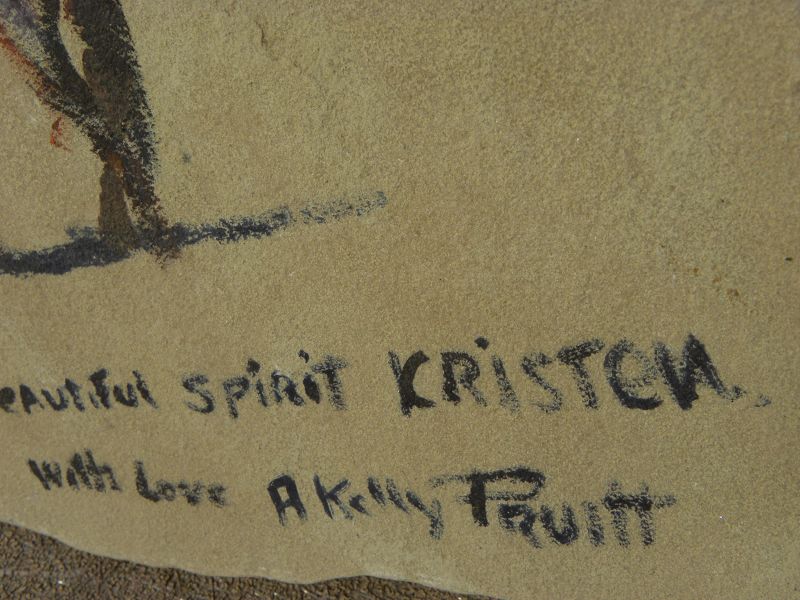 eautiful spirit KRiSTEN.
with Love A Kelly PRUITT